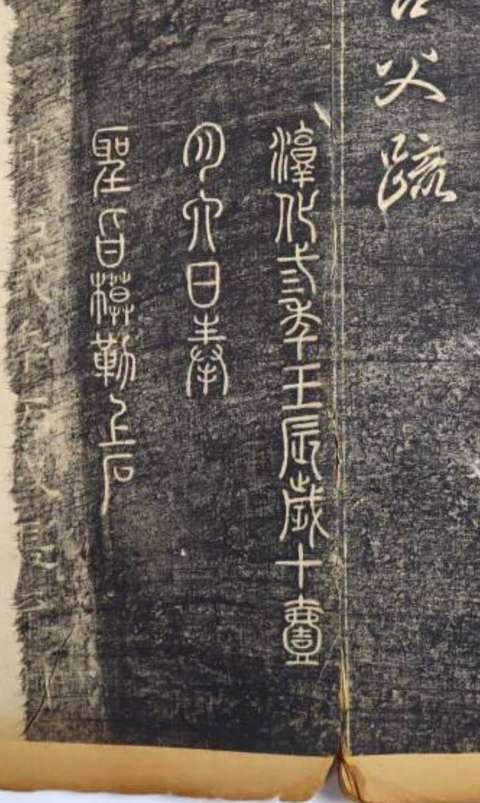 疏
淳化弎年壬辰歲十壹
月六日奉
聖旨模勒上石